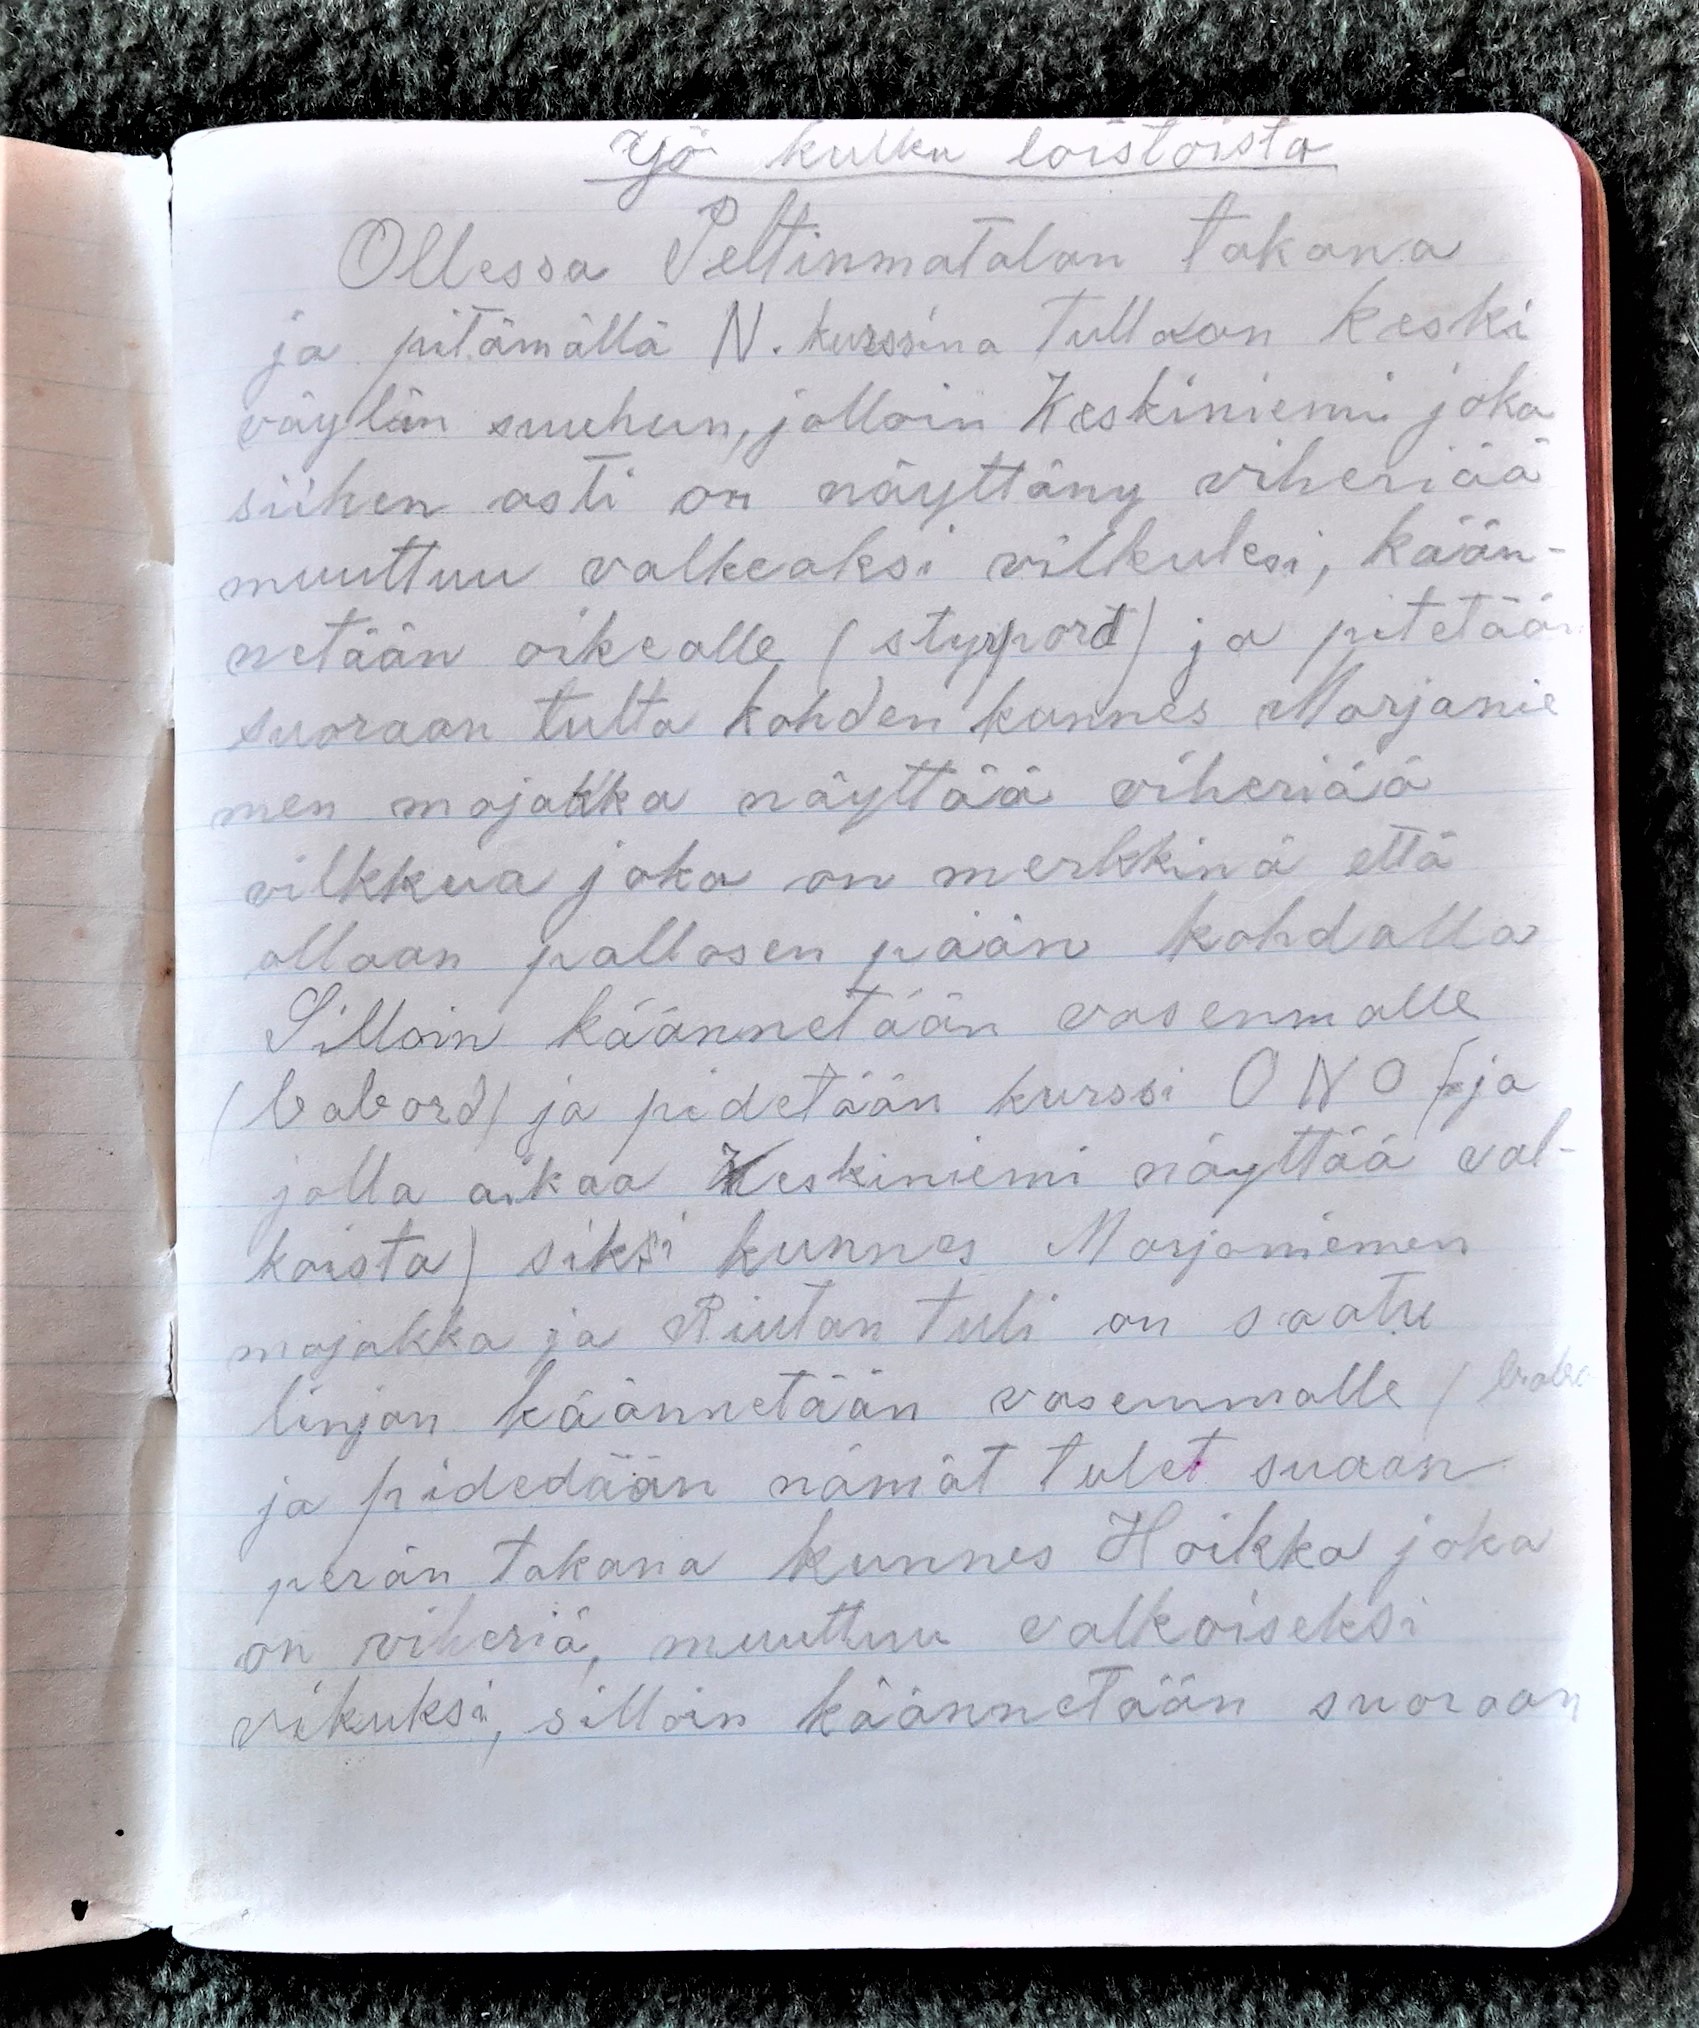 Yö kulku loistoista
Ollessa Peltinmatalan takana
ja pitämällä N. kurssina tullaan keski
väylän suuhun, jolloin Keskiniemi joka
siihen asti on näyttäny viheriää
muuttuu valkeaksi vilkuksi, kään-
netään oikealle (styrpord) ja pitetään
suoraan tulta kohden kunnes Marjanie
men majakka näyttää viheriää
vilkkua joka on merkkinä että
ollaan pallosen pään kohdalla
Silloin käännetään vasenmalle
(babord) ja pidetään kurssi ONO (ja
jolla aikaa Keskiniemi näyttää val-
koista) siksi kunnes Marjaniemen
majakka ja Riutan tuli on saatu
linjan käännetään vasemmalle (
ja pidedään nämät tulet suaan
perän takana kunnes Hoikka joka
on viheriä, muuttuu valkoiseksi
vikuksi, silloin käännetään suoraan